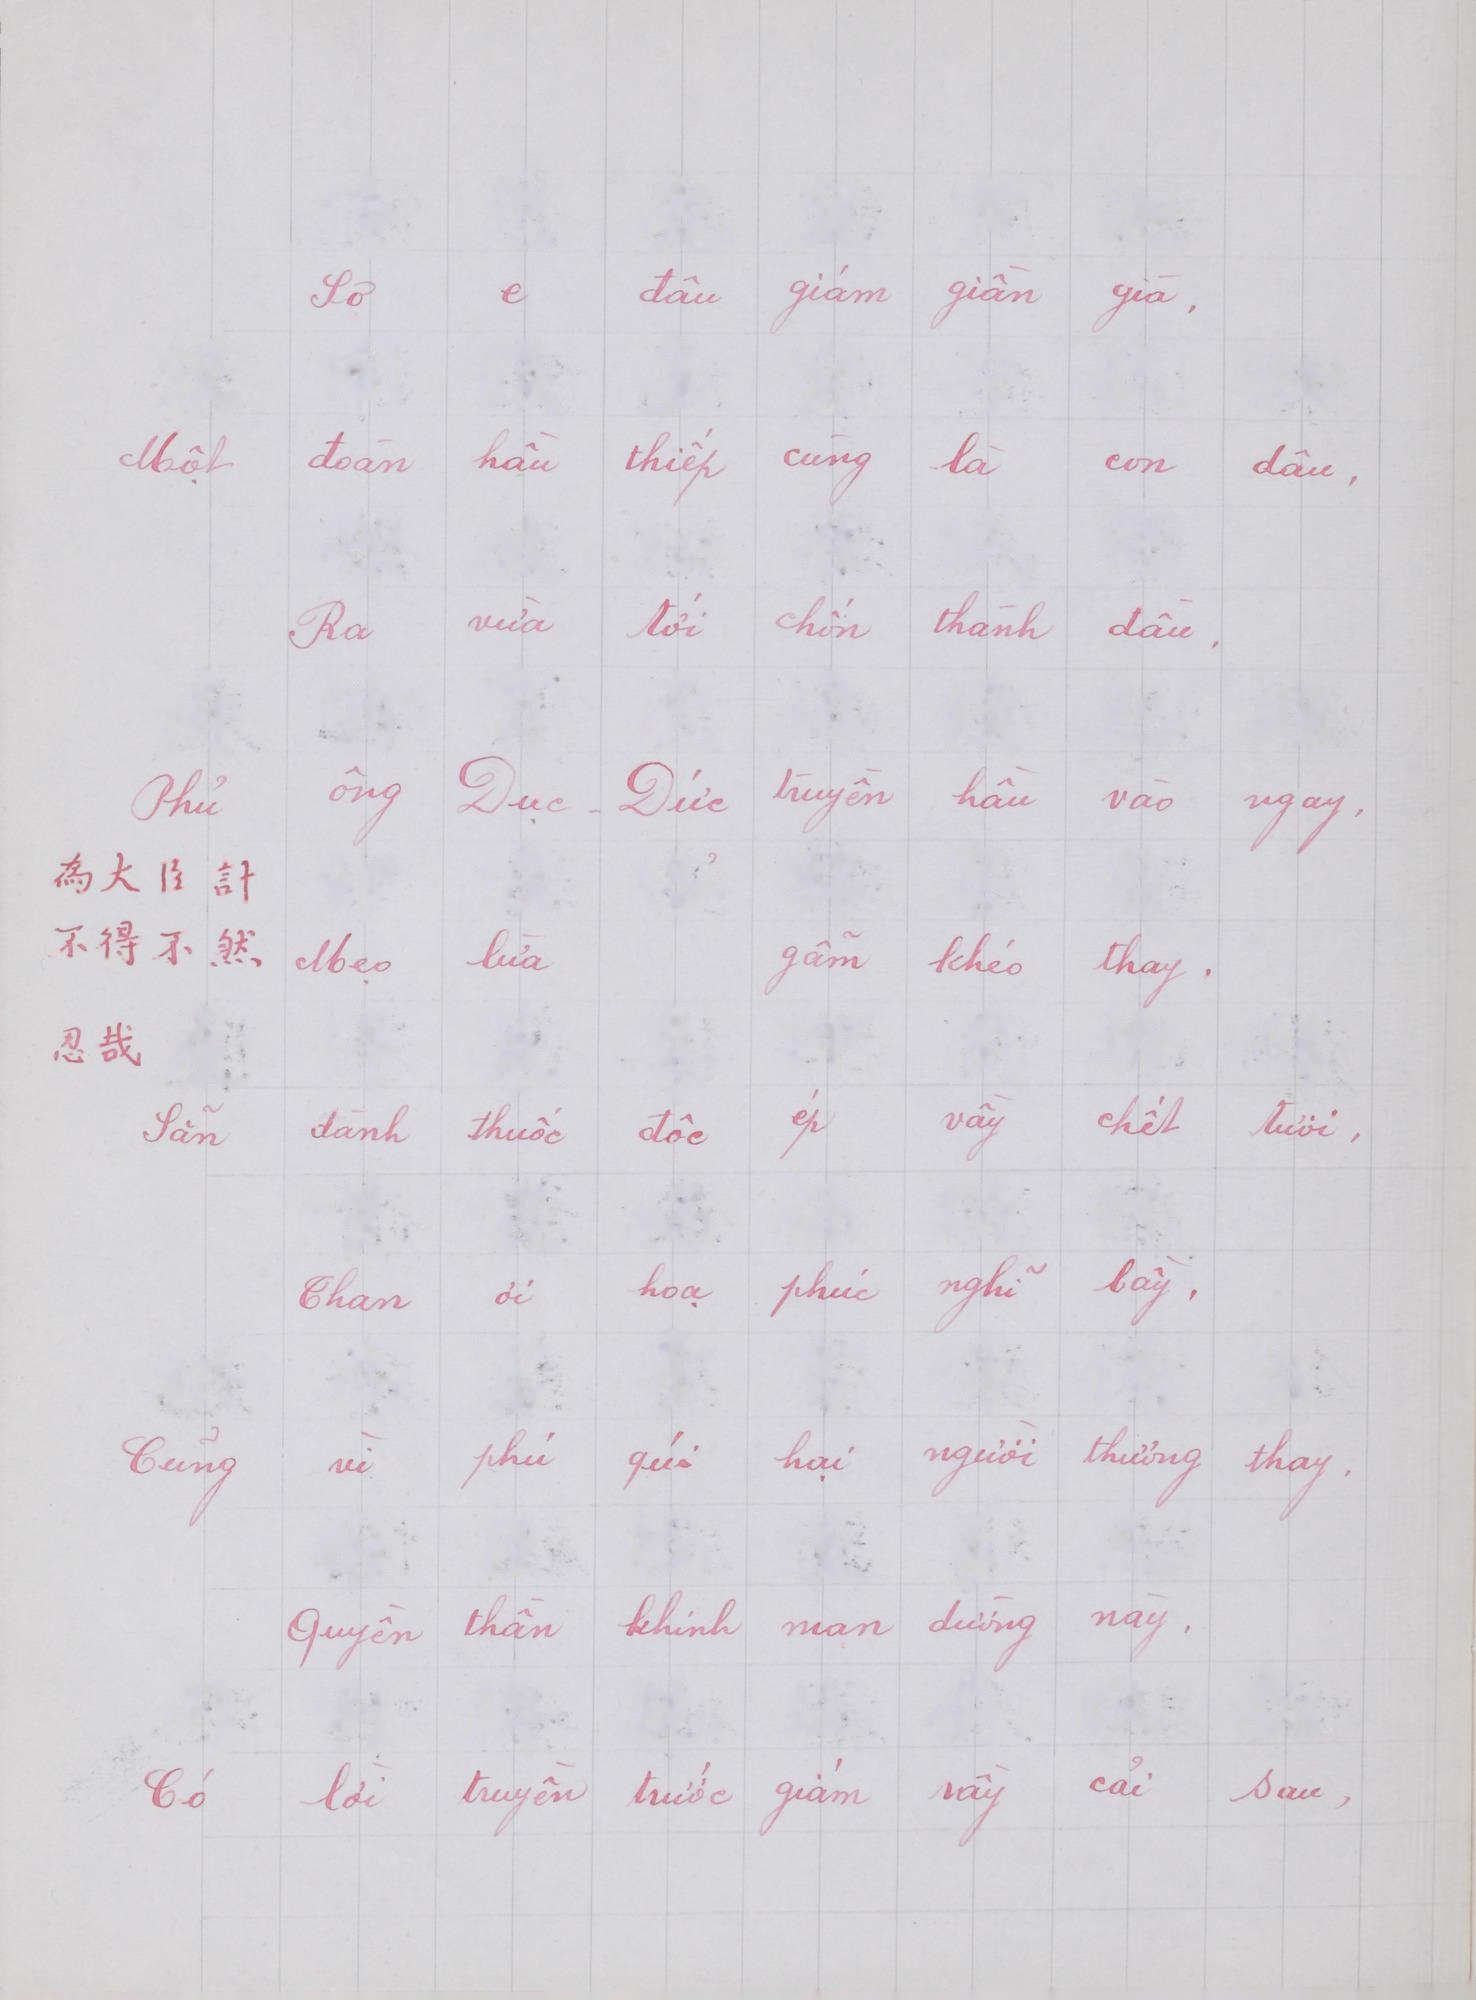 Sơ e đâu giám giần già,
Một đoàn hầu thiếp cùng là con dâu,
Ra vừa tới chốn thành đầu,
Phủ ông Dục-Đức truyền hầu vào ngay,
為大臣計
不得不然
Mẹo lừa gẫm khéo thay,
忍哉
Sẵn dành thuốc độc ép vầy chết tươi,
Than ôi hoạ phúc nghĩ bầy,
Cũng vì phú quí hại người thương thay,
Quyền thần khinh man dường này,
Có lời truyền trước giám rầy cải sau,